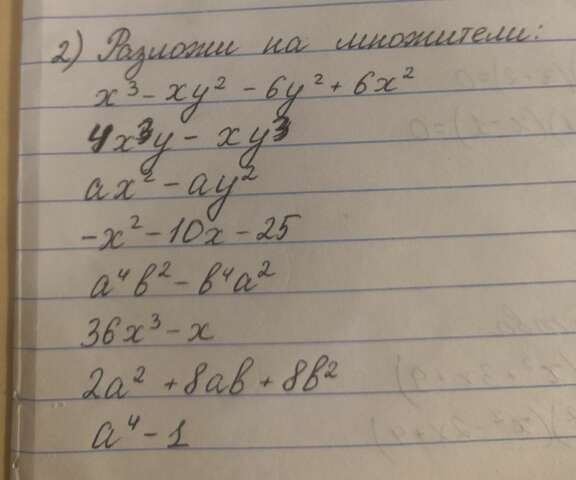 2) Разложи на множители:
x³ - xy² - 6y² + 6x²
4x³y - xy³
ax² - ay²
-x² - 10x - 25
a⁴b² - b⁴a²
36x³ - x
2a² + 8ab + 8b²
a⁴ - 1